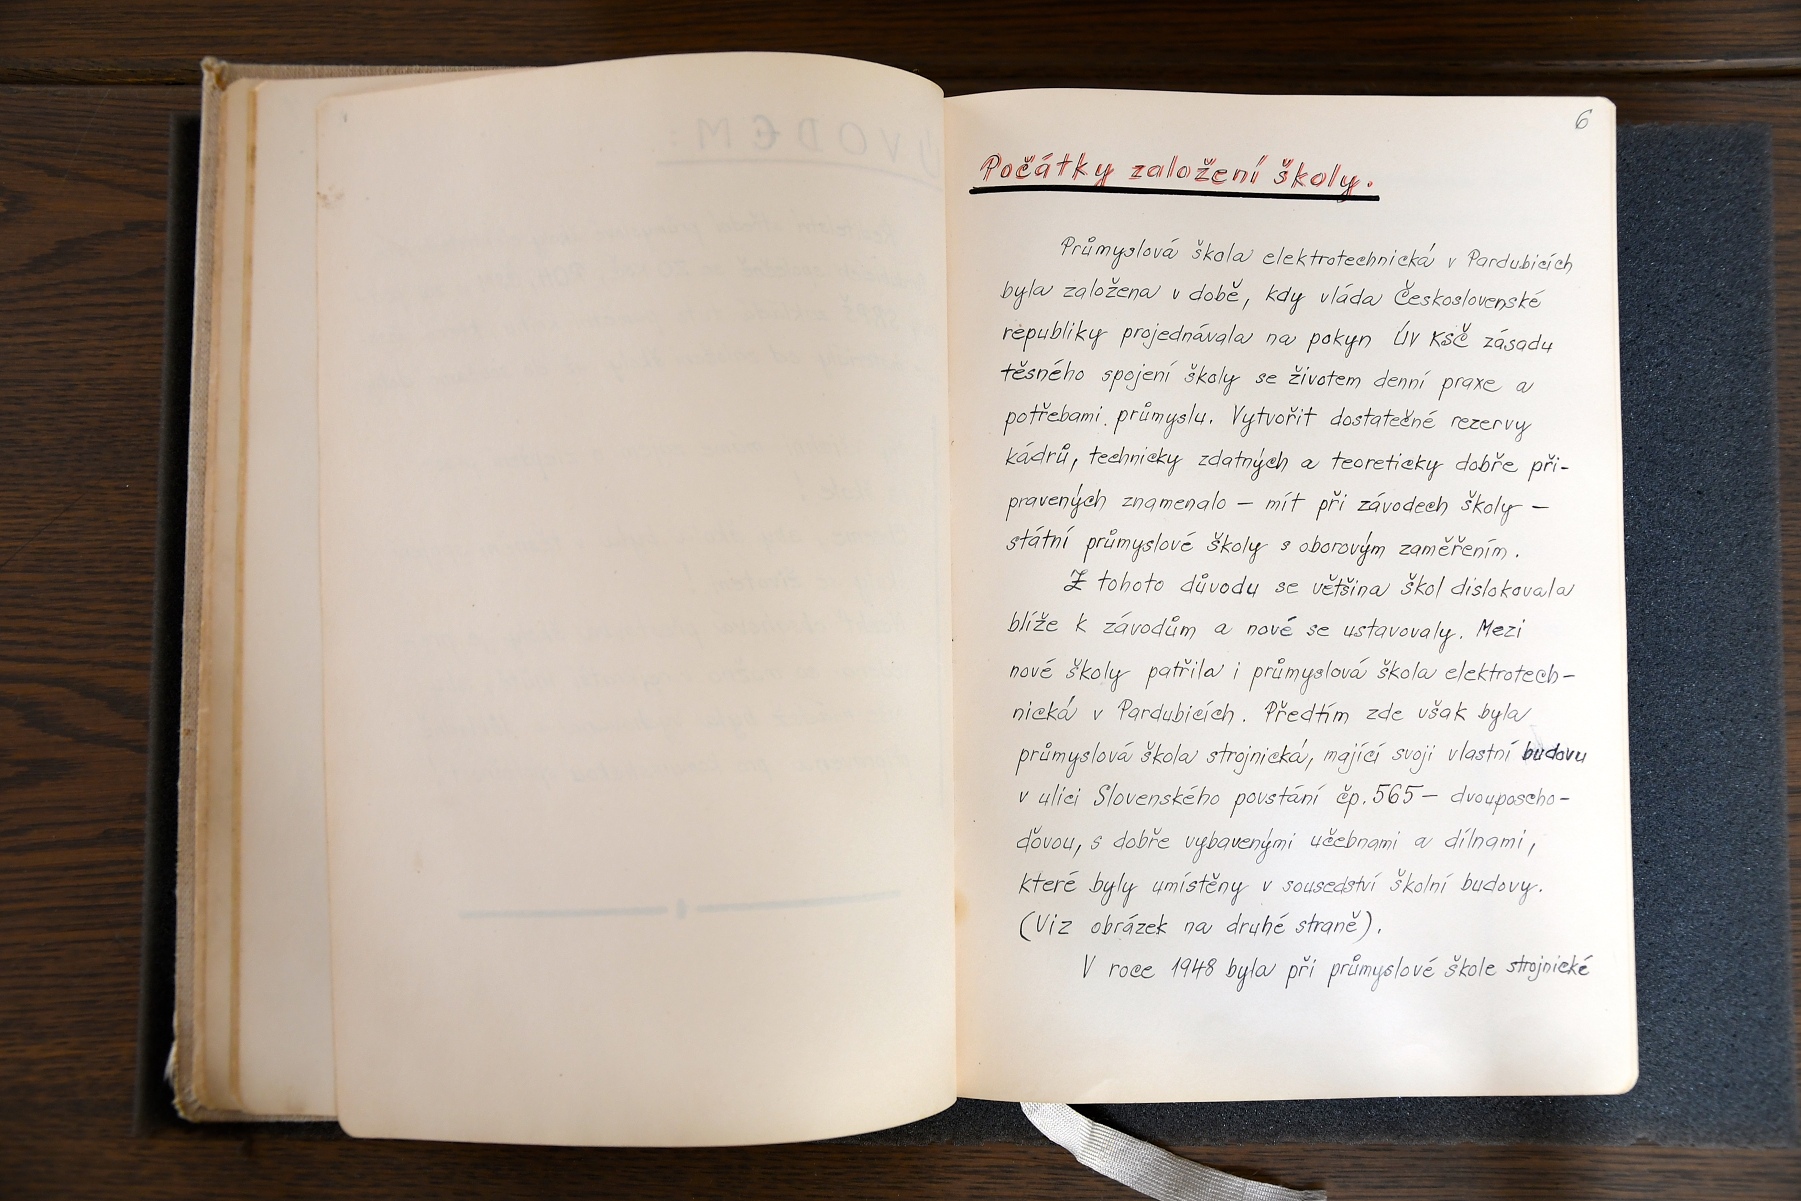 6
Počátky založení školy.
Průmyslová škola elektrotechnická v Pardubicích
byla založena v době, kdy vláda Československé
republiky projednávala na pokyn ÚV KSČ zásadu
těsného spojení školy se životem denní praxe a
potřebami průmyslu. Vytvořit dostatečné rezervy
kádrů, technicky zdatných a teoreticky dobře při-
pravených znamenalo – mít při závodech školy –
státní průmyslové školy s oborovým zaměřením.
Z tohoto důvodu se většina škol dislokovala
blíže k závodům a nové se ustavovaly. Mezi
nové školy patřila i průmyslová škola elektrotech-
nická v Pardubicích. Předtím zde však byla
průmyslová škola strojnická, mající svoji vlastní budovu
v ulici Slovenského povstání čp. 565 – dvouposcho-
ďovou, s dobře vybavenými učebnami a dílnami,
které byly umístěny v sousedství školní budovy.
(Viz obrázek na druhé straně).
V roce 1948 byla při průmyslové škole strojnické